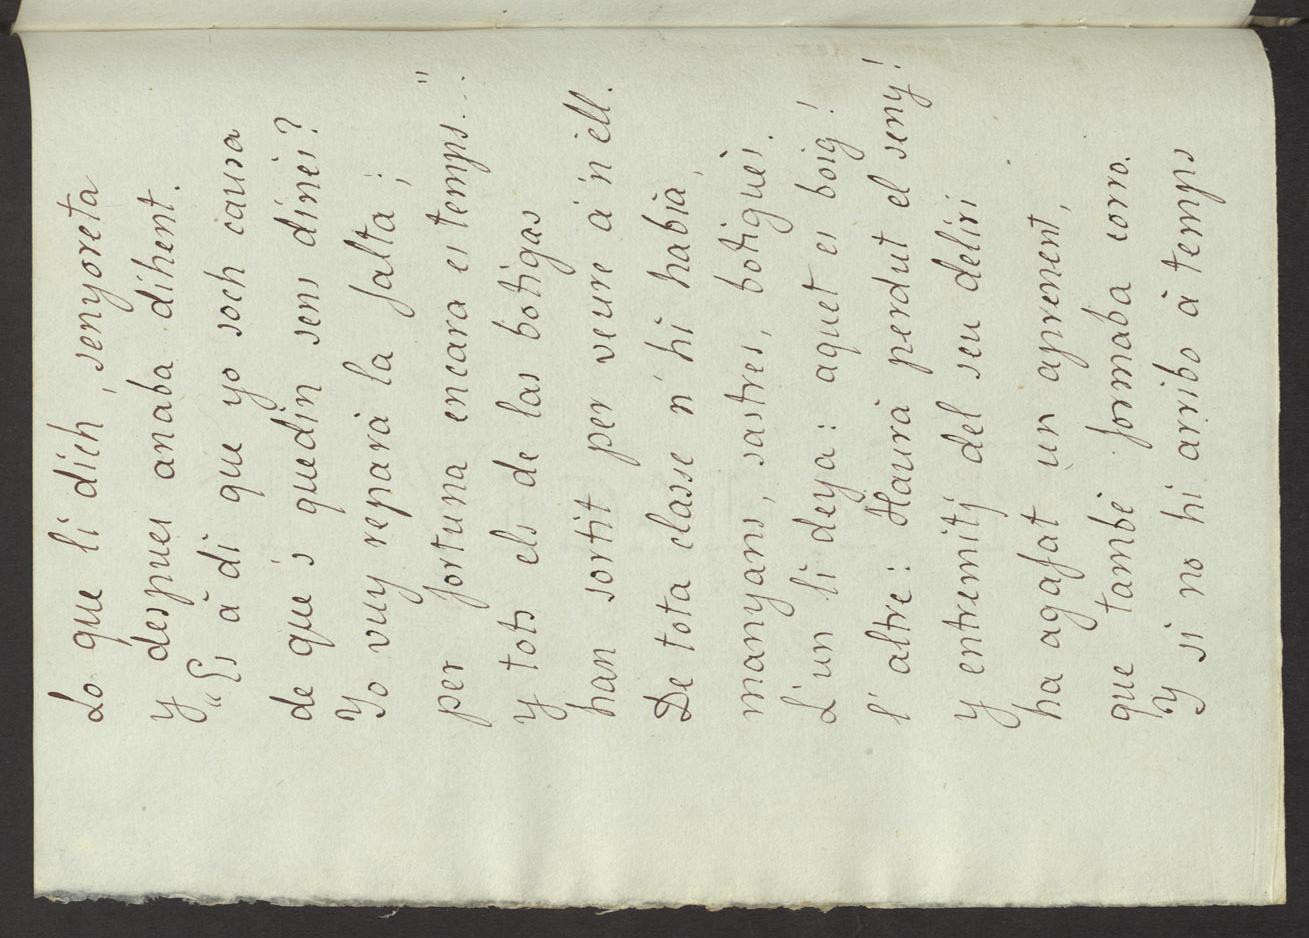 Lo que li dich, senyoreta
y despues anaba dihent.
"Es á di que yo soch causa
de que 's quedin sens dinés?
Yo vuy repará la falta;
per fortuna encara es temps..."
y tots els de las botigas
han sortit per veure á 'n ell.
De tota classe n' hi habia,
manyans, sastres, botigués.
L' un li deya: aquet es boig!
l' altre: Haurá perdut el seny!
y entremitj del seu deliri
ha agafat un aprenent,
que també formaba corro.
Y si no hi arribo á temps